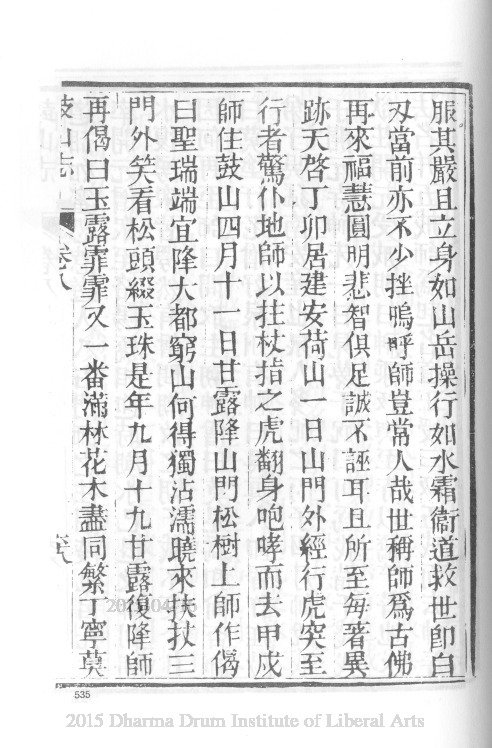 服其嚴且立身如山岳操行如水霜衞道救世卽白
刃當前亦不少挫嗚呼師豈常人哉世稱師爲古佛
再來福慧圓明悲智俱足誠不誣耳且所至每著異
跡天啓丁卯居建安荷山一日山門外經行虎突至
行者驚仆地師以拄杖指之虎翻身咆哮而去甲戍
師住鼓山四月十一日甘露降山門松樹上師作偈
曰聖瑞端宜降大都窮山何得獨沾濡曉來扶杖三
門外笑看松頭綴玉珠是年九月十九甘露復降師
再偈曰玉露霏霏又一番滿林花木盡同繁丁寧莫
鼓山志 卷八
535
2015 Dharma Drum Institute of Liberal Arts